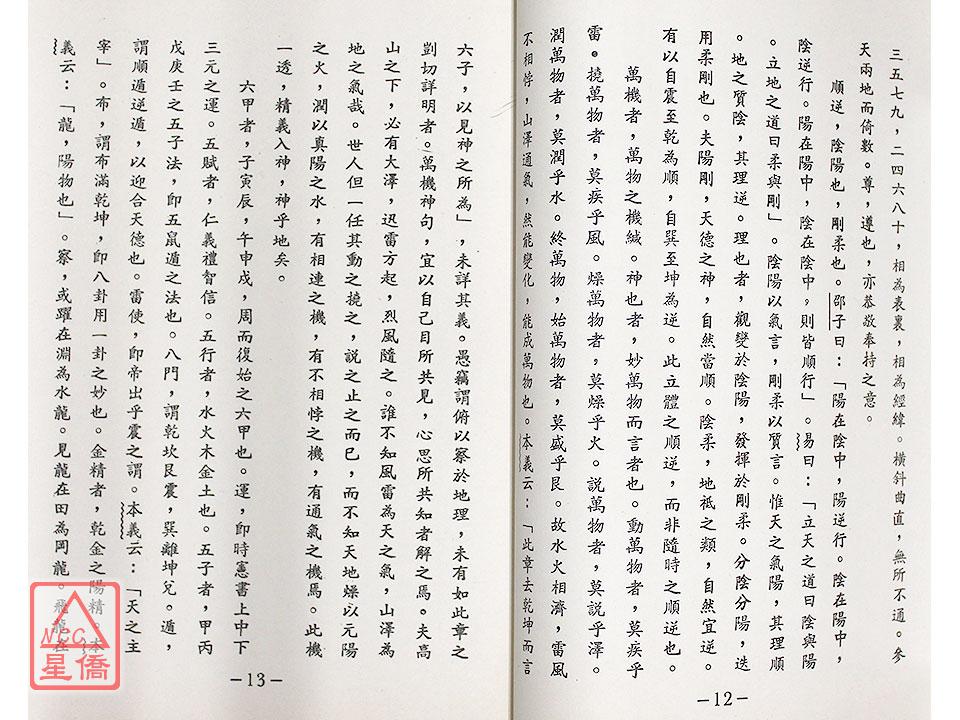 三五七九，二四六八十，相為表裏，相為經緯。橫斜曲直，無所不通。參
天兩地而倚數。尊，遵也，亦恭敬奉持之意。
順逆，陰陽也，剛柔也。邵子曰：「陽在陰中，陽逆行。陰在陽中，
陰逆行。陽在陽中，陰在陰中，則皆順行」。易曰：「立天之道曰陰與陽
。立地之道曰柔與剛」。陰陽以氣言，剛柔以質言。惟天之氣陽，其理順
。地之質陰，其理逆。理也者，觀變於陰陽，發揮於剛柔。分陰分陽，迭
用柔剛也。夫陽剛，天德之神，自然當順。陰柔，地祗之類，自然宜逆。
有以自震至乾為順，自巽至坤為逆。此立體之順逆，而非隨時之順逆也。
萬機者，萬物之機緘。神也者，妙萬物而言者也。動萬物者，莫疾乎
雷。撓萬物者，莫疾乎風。燥萬物者，莫燥乎火。說萬物者，莫說乎澤。
潤萬物者，莫潤乎水。終萬物，始萬物者，莫盛乎艮。故水火相濟，雷風
不相悖，山澤通氣，然能變化，能成萬物也。本義云：「此章去乾坤而言
－12－
六子，以見神之所為」，未詳其義。愚竊謂俯以察於地理，未有如此章之
剴切詳明者。萬機神句，宜以自己目所共見，心思所共知者解之焉。夫高
山之下，必有大澤，迅雷方起，烈風隨之。誰不知風雷為天之氣，山澤為
地之氣哉。世人但一任其動之撓之，說之止之而已，而不知天地燥以元陽
之火，潤以真陽之水，有相連之機，有不相悖之機，有通氣之機焉。此機
一透，精義入神，神乎地矣。
六甲者，子寅辰，午申戌，周而復始之六甲也。運，即時憲書上中下
三元之運。五賦者，仁義禮智信。五行者，水火木金土也。五子者，甲丙
戊庚壬之五子法，即五鼠遁之法也。八門，謂乾坎艮震，巽離坤兌。遁，
謂順遁逆遁，以迎合天德也。雷使，即帝出乎震之謂。本義云：「天之主
宰」。布，謂布滿乾坤，即八卦用一卦之妙也。金精者，乾金之陽精。本
義云：「龍，陽物也」。察，或躍在淵為水龍。見龍在田為岡龍。飛龍在
－13－
NCC
星僑